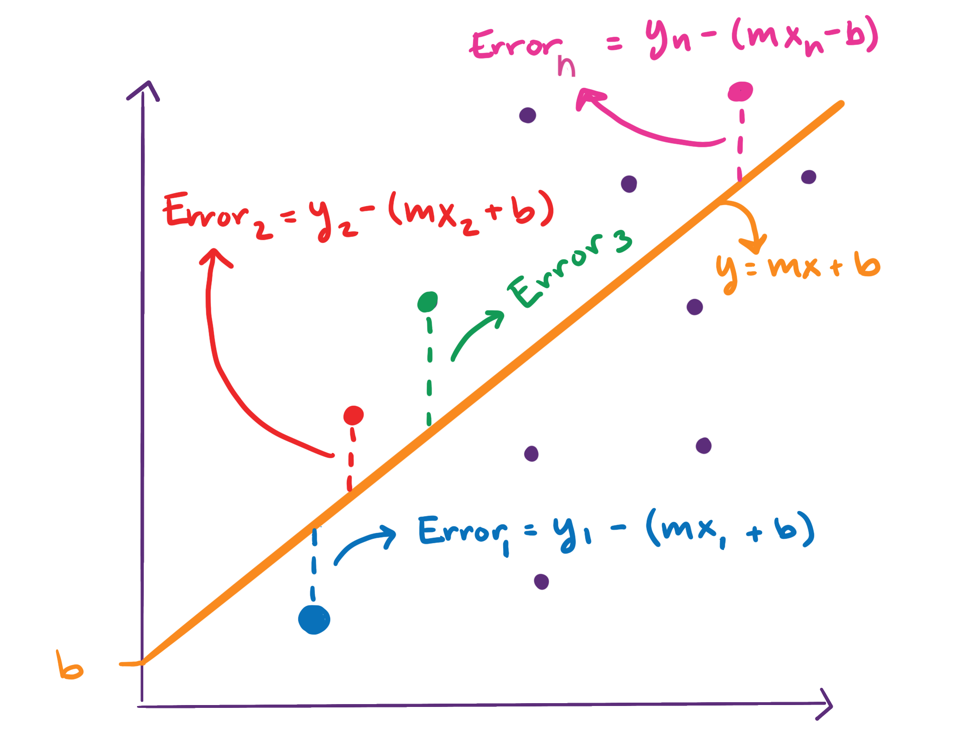 Errorₙ = yₙ - (mxₙ - b)
Error₂ = y₂ - (mx₂ + b)
Error 3
y = mx + b
Error₁ = y₁ - (mx₁ + b)
b